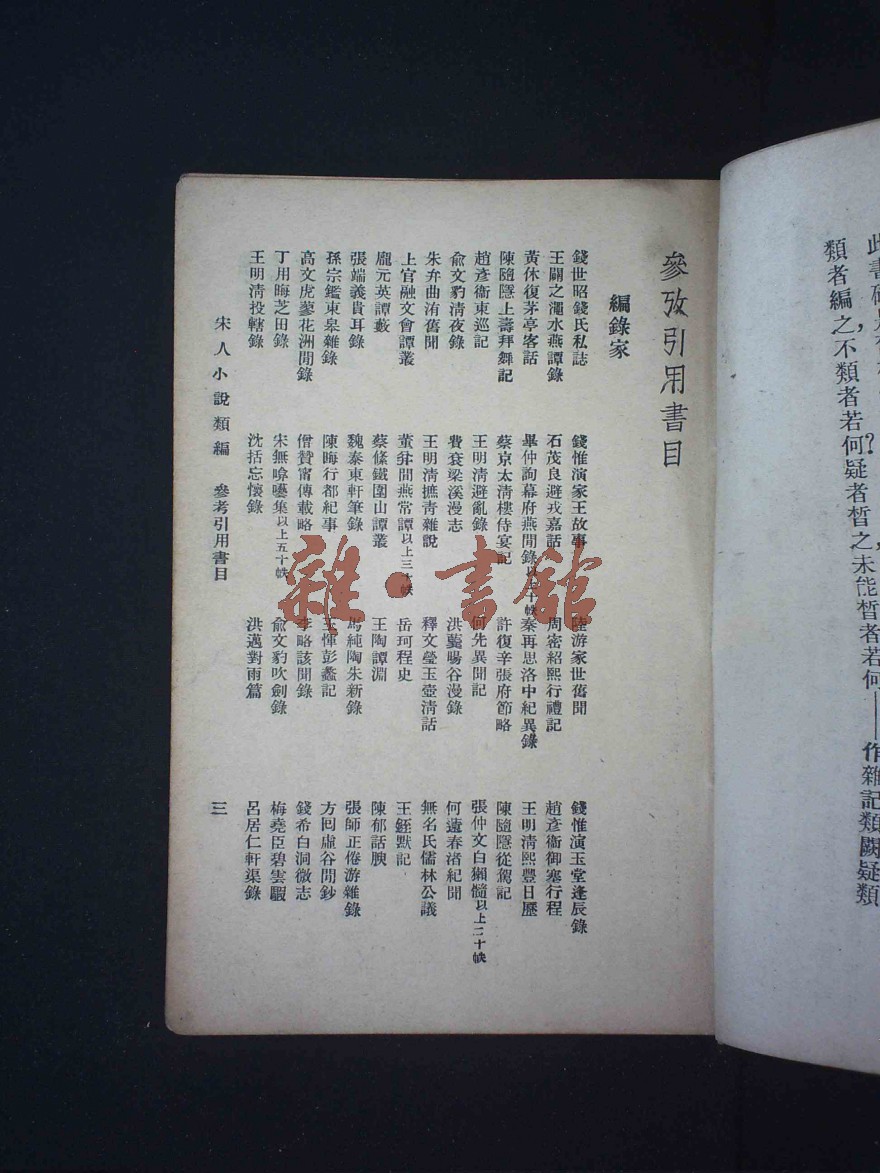 類者編之不類者若何疑者晳之未能晳者若何——作雜記類闕疑類
參攷引用書目
編錄家
錢世昭錢氏私誌 錢惟演家王故事 陸游家世舊聞 錢惟演玉堂逢辰錄
王闢之澠水燕譚錄 石茂良避戎嘉話 周密紹熙行禮記 趙彥衞御塞行程
黃休復茅亭客話 畢仲詢幕府燕閒錄以上十帙 秦再思洛中紀異錄 王明淸熙豐日歷
陳隨隱上壽拜舞記 蔡京太淸樓侍宴記 許復辛張府節略 陳隨隱從駕記
趙彥衞東巡記 王明淸避亂錄 何先異聞記 張仲文白獺髓以上二十帙
俞文豹淸夜錄 費袞梁溪漫志 洪㢸暘谷漫錄 何薳春渚紀聞
朱弁曲洧舊聞 王明淸摭靑雜說 釋文瑩玉壺淸話 無名氏儒林公議
上官融文會譚叢 董弅閒燕常譚以上三十帙 岳珂桯史 王銍默記
龐元英譚藪 蔡絛鐵圍山譚叢 王陶譚淵 陳郁話腴
張端義貴耳錄 魏泰東軒筆錄 馬純陶朱新錄 張師正倦游雜錄
孫宗鑑東皋雜錄 陳晦行都紀事 王惲彭蠡記 方囘虛谷閒鈔
高文虎蓼花洲閒錄 僧贊甯傳載略 李略該聞錄 錢希白洞微志
丁用晦芝田錄 宋無啽囈集以上五十帙 俞文豹吹劍錄 梅堯臣碧雲騢
王明淸投轄錄 沈括忘懷錄 洪邁對雨篇 呂居仁軒渠錄
宋人小說類編 參考引用書目 三
雜·書館